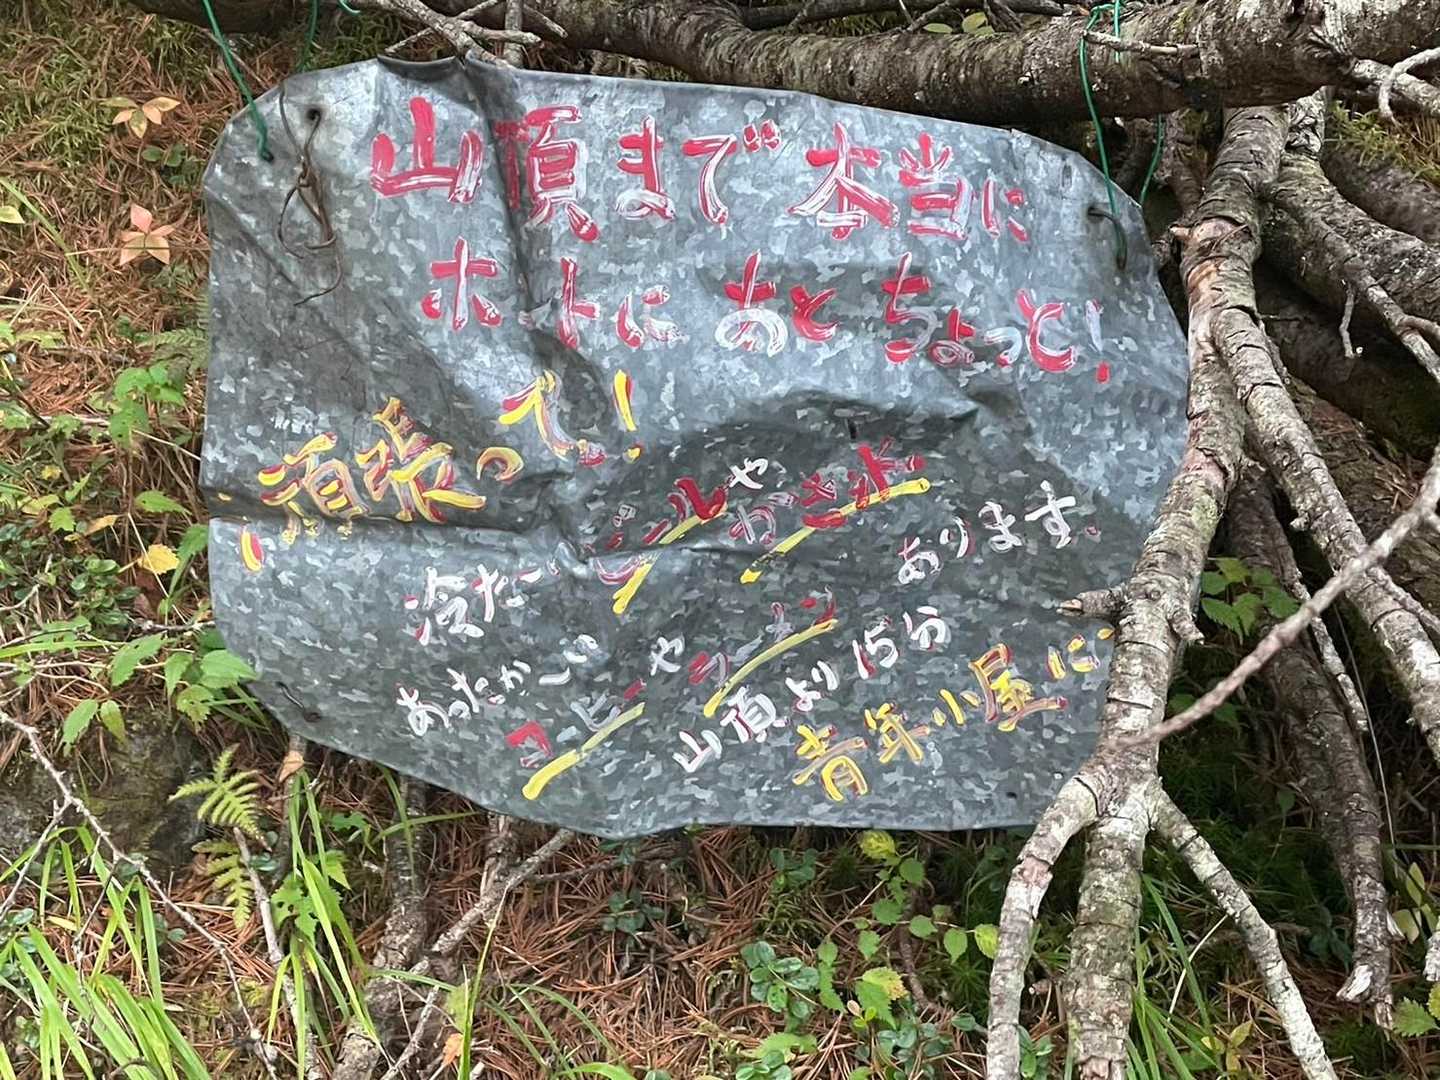 山頂まで本当に
ホントにあとちょっと!
頑張って!
冷た〜いビールやかき氷
あります。
あったか〜いコーヒーやラーメン
山頂より15分
青年小屋に